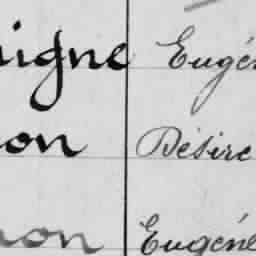 igne Eugé
on Désiré
on Eugéne